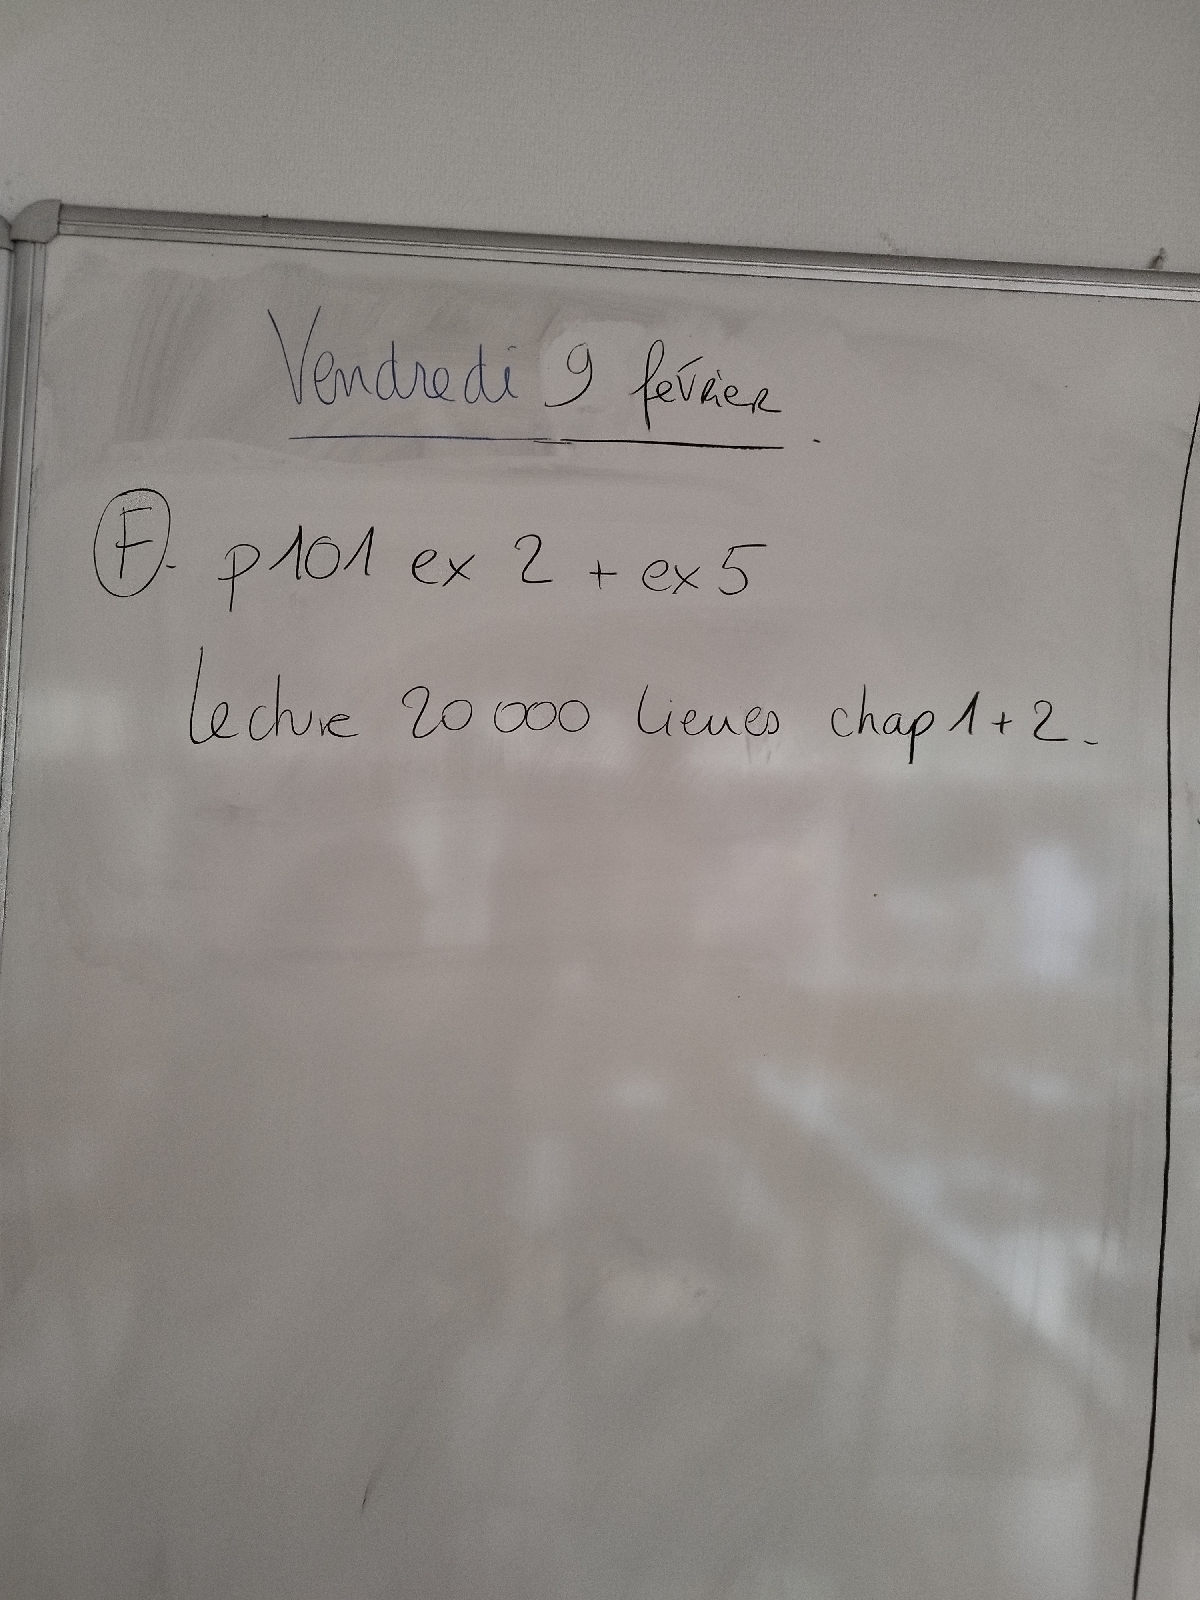 Vendredi 9 février.
F. p101 ex 2 + ex 5
Lecture 20 000 Lieues chap 1 + 2.